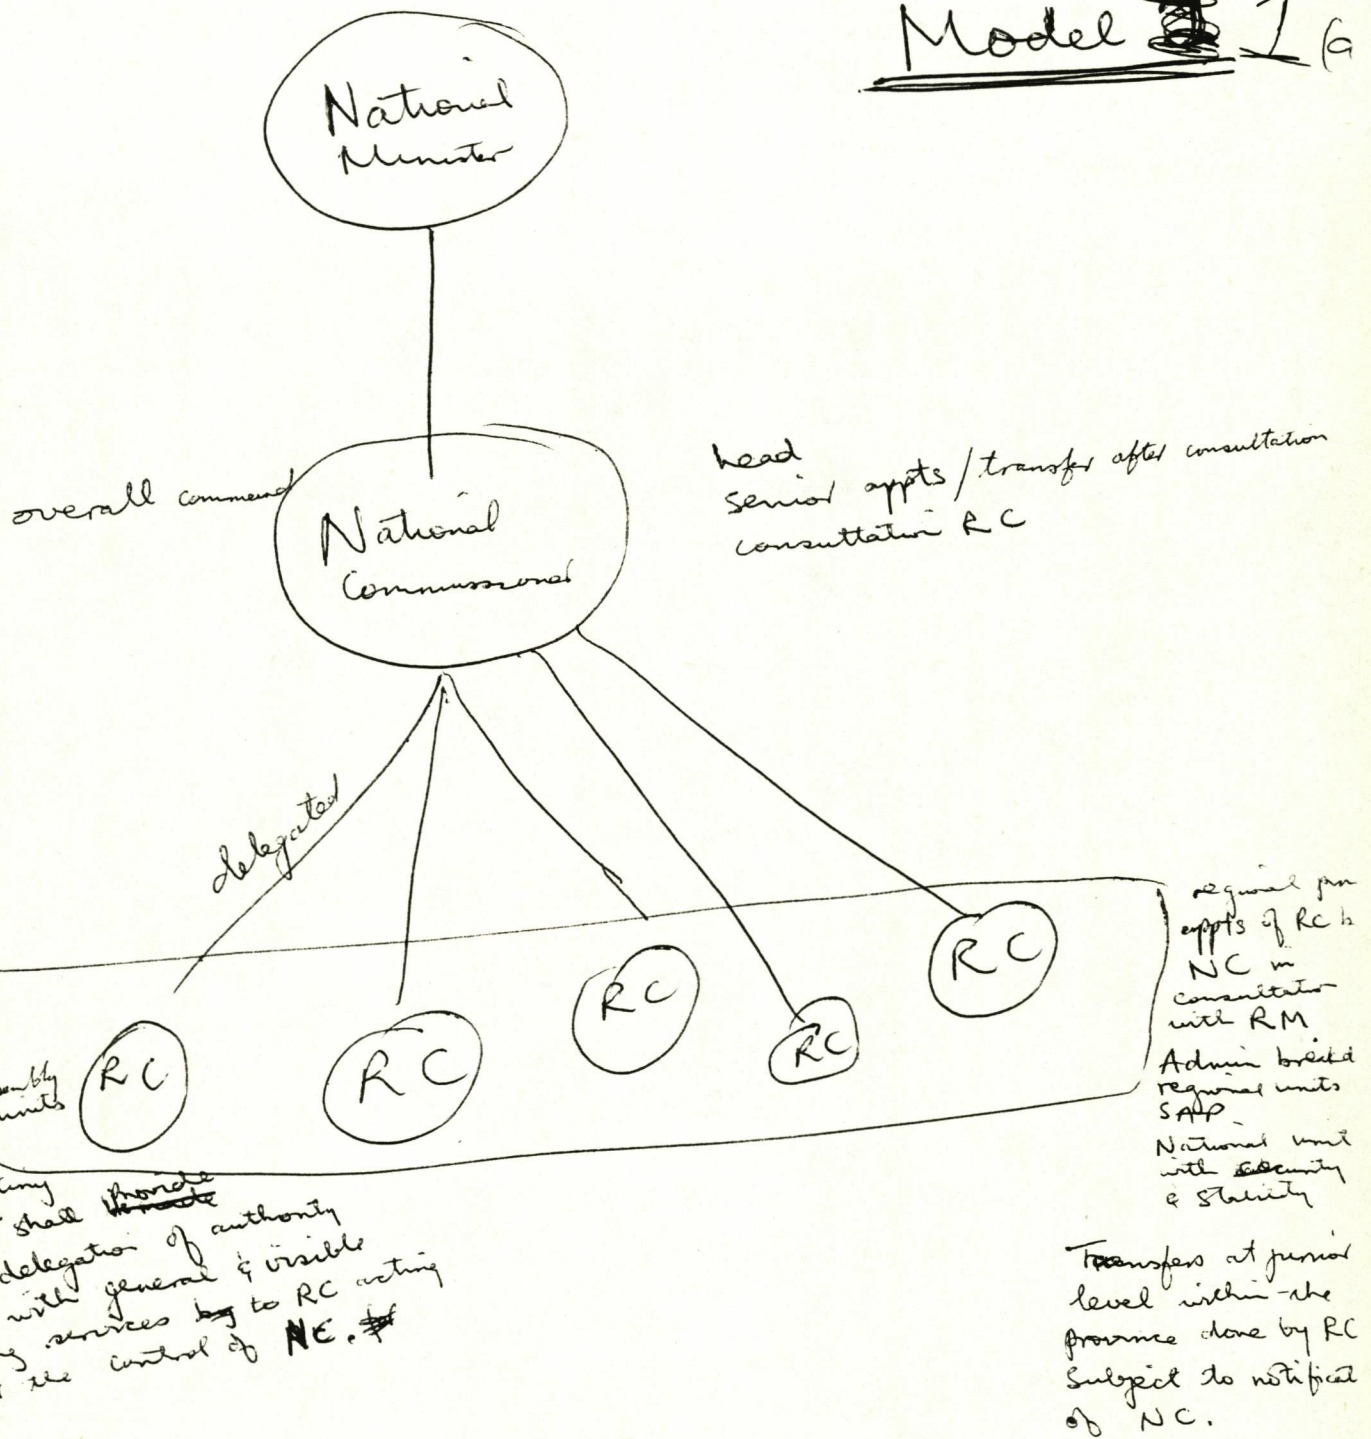 Model 1 (a
National
Minister
overall command
National
Commissioner
head
senior appts / transfer after consultation
consultation RC
delegated
RC
RC
RC
RC
RC
units
regional
appts of RC b
NC in
consultation
with RM
Admin breakd
regional units
SAP
National unit
with security
& Stability
shall provide
delegation of authority
with general & visible
services by to RC acting
the control of NC.
Transfers at junior
level within the
province done by RC
Subject to notificat
of NC.